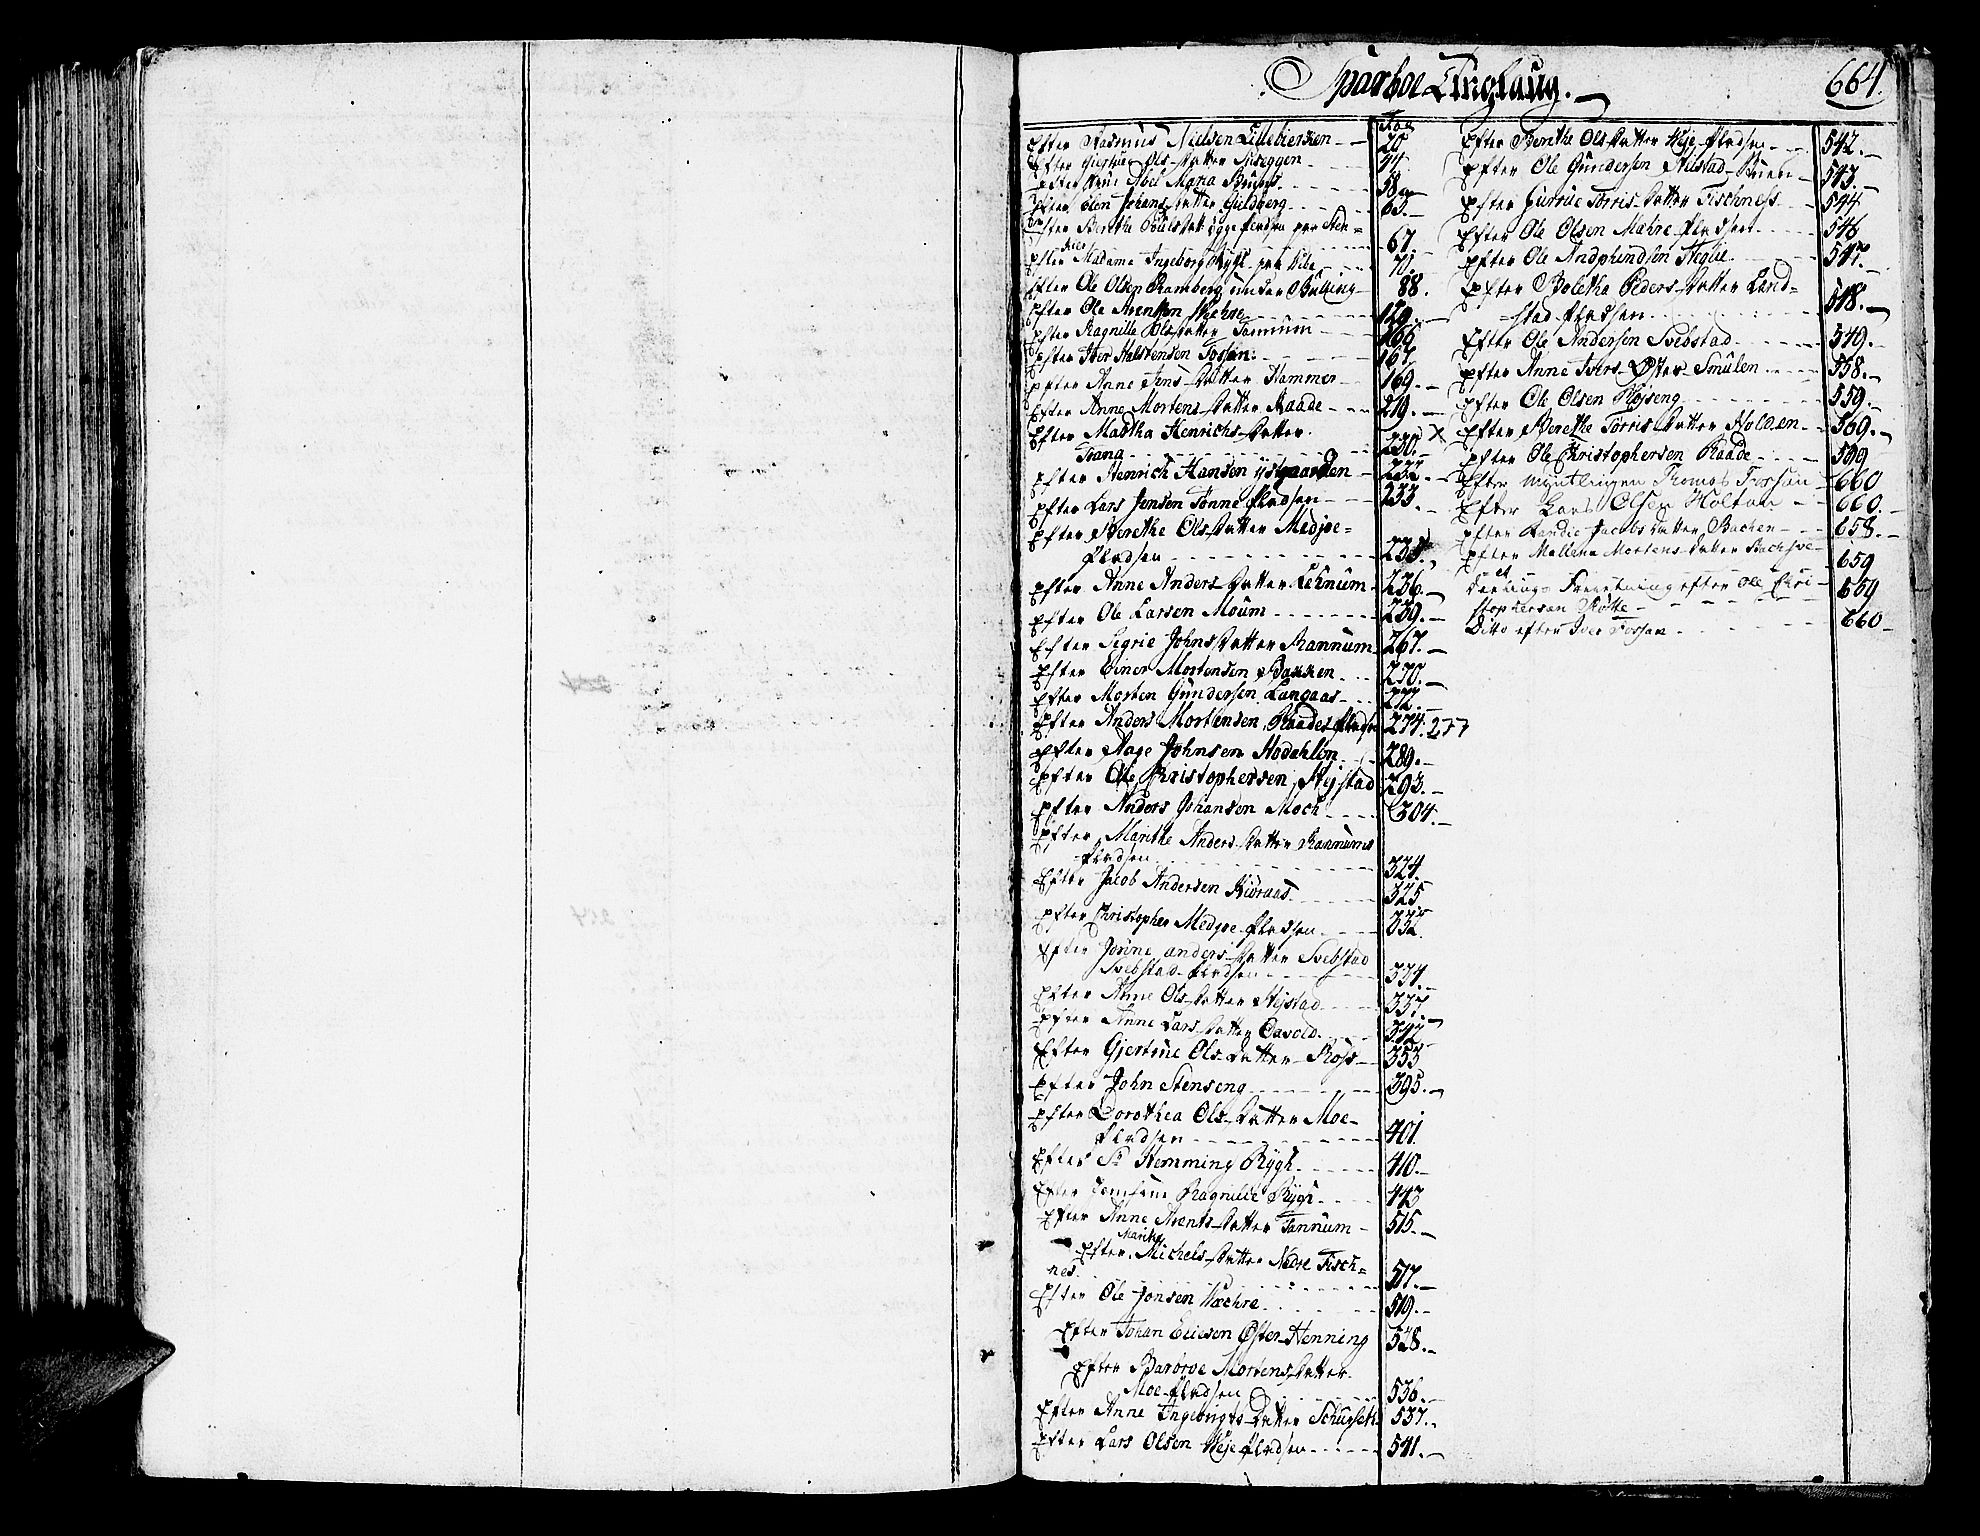 Sparboe Tinglaug.
664.
Fol
Efter Rasmus Nielsen Lillebierken 20
Efter Ols datter 44
Efter Abel Maria Bruns 58
Efter Elen Johans datter Guldberg 63.
Efter Berethe Pouls datter ygge pladsen 67.
Efter Madame Ingeborg 71.
Efter Ole Olsen Ramberg under Bulling 88.
Efter Ole Svendsen Mæhre 129.
Efter Ragnille Ols datter Tannum 166
Efter Iver Halstensen Fossen 167.
Efter Anne Jens datter Hammer 169.
Efter Anne Mortens datter Raade 219.
Efter Madtha Henrichs datter
Trana 230.
Efter Henrich Hansen ystgaarden 232.
Efter Lars Jonsen Tønne pladsen 233.
Efter Berethe Ols datter Medjoe=
pladsen 235.
Efter Anne Anders datter Leknum 236.
Efter Ole Larsen Moum 239.
Efter Segrie Johns datter Rannum 267.
Efter Einer Mortensen Bakken 270.
Efter Morten Gundersen Langaas 272.
Efter Anders Mortensen Raades pladsen 274. 277
Efter Aage Johnsen Hodahlen 289.
Efter Ole Christophersen Stejstad 293.
Efter Anders Johansen Moch 304.
Efter Marithe Anders datter Rannums
pladsen 324.
Efter Jacob Andersen 325
Efter Christopher Medjoe pladsen 332.
Efter Anders datter Svebstad
Svebstad pladsen 334.
Efter Anne Ols datter Stejstad 337.
Efter Anne Lars datter Oavold 342
Efter Gjertrue Ols datter 353
Efter John Stenseng 395.
Efter Dorothea Ols datter Moe-
pladsen 401
Efter Sr Hemming Rygh 410.
Efter Jomfrue Ragnilde Rygh 443
Efter Anne Arents datter Tannum 515.
Efter Marithe Michels datter Nedre Tisch=
nes 517.
Efter Ole Jonsen Mæhre 519.
Efter Johan Ericsen Øster Henning 528.
Efter Barbroe Mortens datter
Moe pladsen 536.
Efter Anne Ingebrigts datter 537.
Efter Lars Olsen Heje pladsen 541.
Efter Berethe Ols datter Heje pladsen 542.
Efter Ole Gundersen 543.
Efter Gurrue Torris datter Tischness 544.
Efter Ole Olsen Mæhre pladsen 546
Efter Ole Andphindsen 547.
Efter Boletha Peders datter Land=
stad pladsen 548.
Efter Ole Andersen Svebstad 549.
Efter Anne Ivers Øster Smulen 558.
Efter Ole Olsen Røjseng 559.
X Efter Berethe Torris datter Holoen 569.
Efter Ole Christophersen Raade 599
Efter Myntlingen Thomas Fossum 660
Efter Lars Olsen Holtan 660.
Efter Randie Jacobs datter Bachen 658.
Efter Mallena Mortens datter 659
efter Ole Chri- 659
stophersen Røtte
Ditto efter Iver Fossen 660